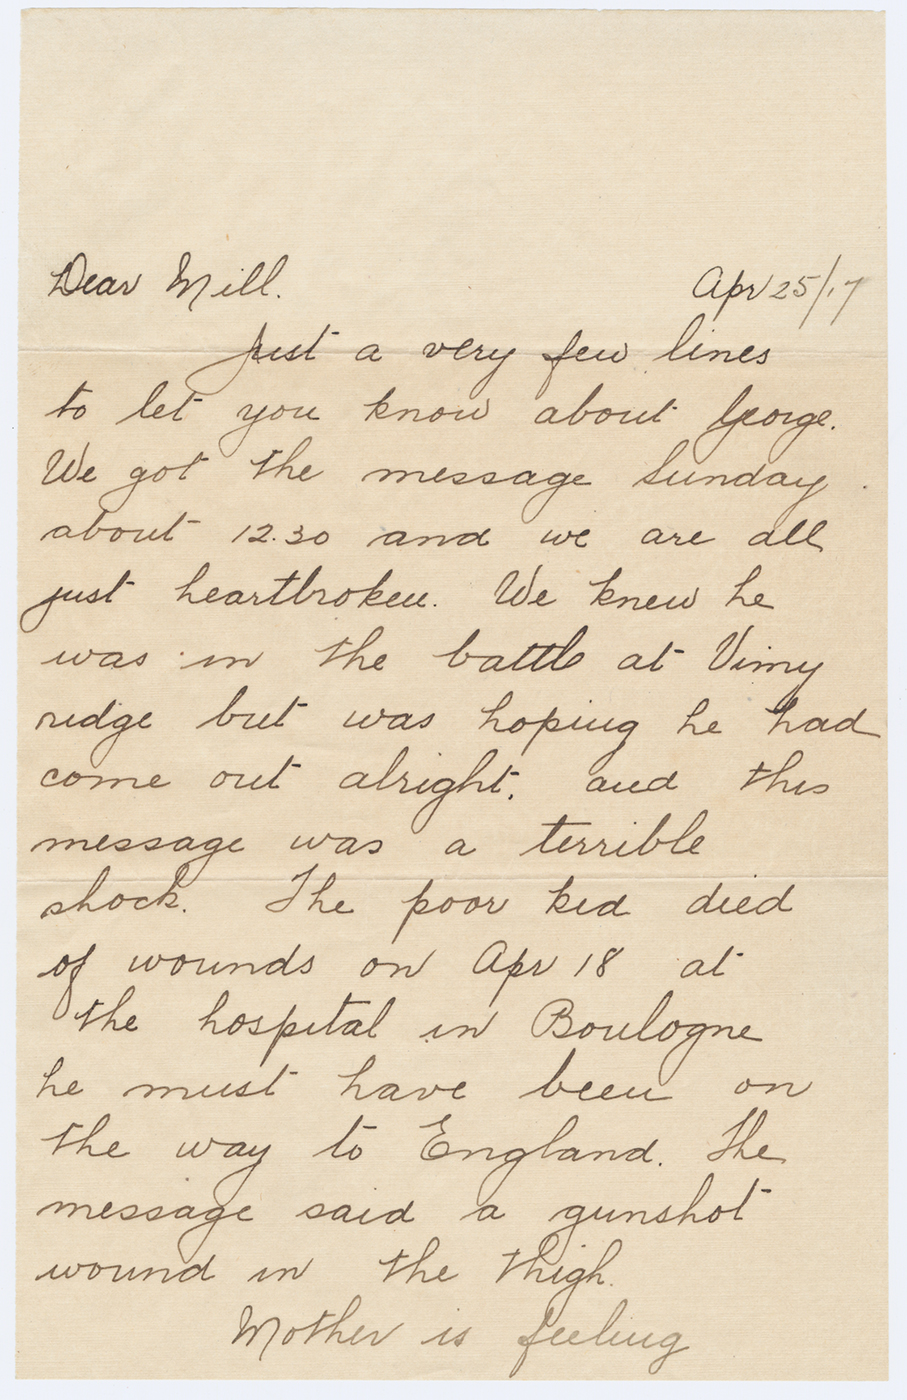 Dear Mill. Apr 25/17
Just a very few lines
to let you know about George.
We got the message Sunday
about 12.30 and we are all
just heartbroken. We knew he
was in the battle at Vimy
ridge but was hoping he had
come out alright. and this
message was a terrible
shock. The poor kid died
of wounds on Apr 18 at
the hospital in Boulogne
he must have been on
the way to England. The
message said a gunshot
wound in the thigh.
Mother is feeling